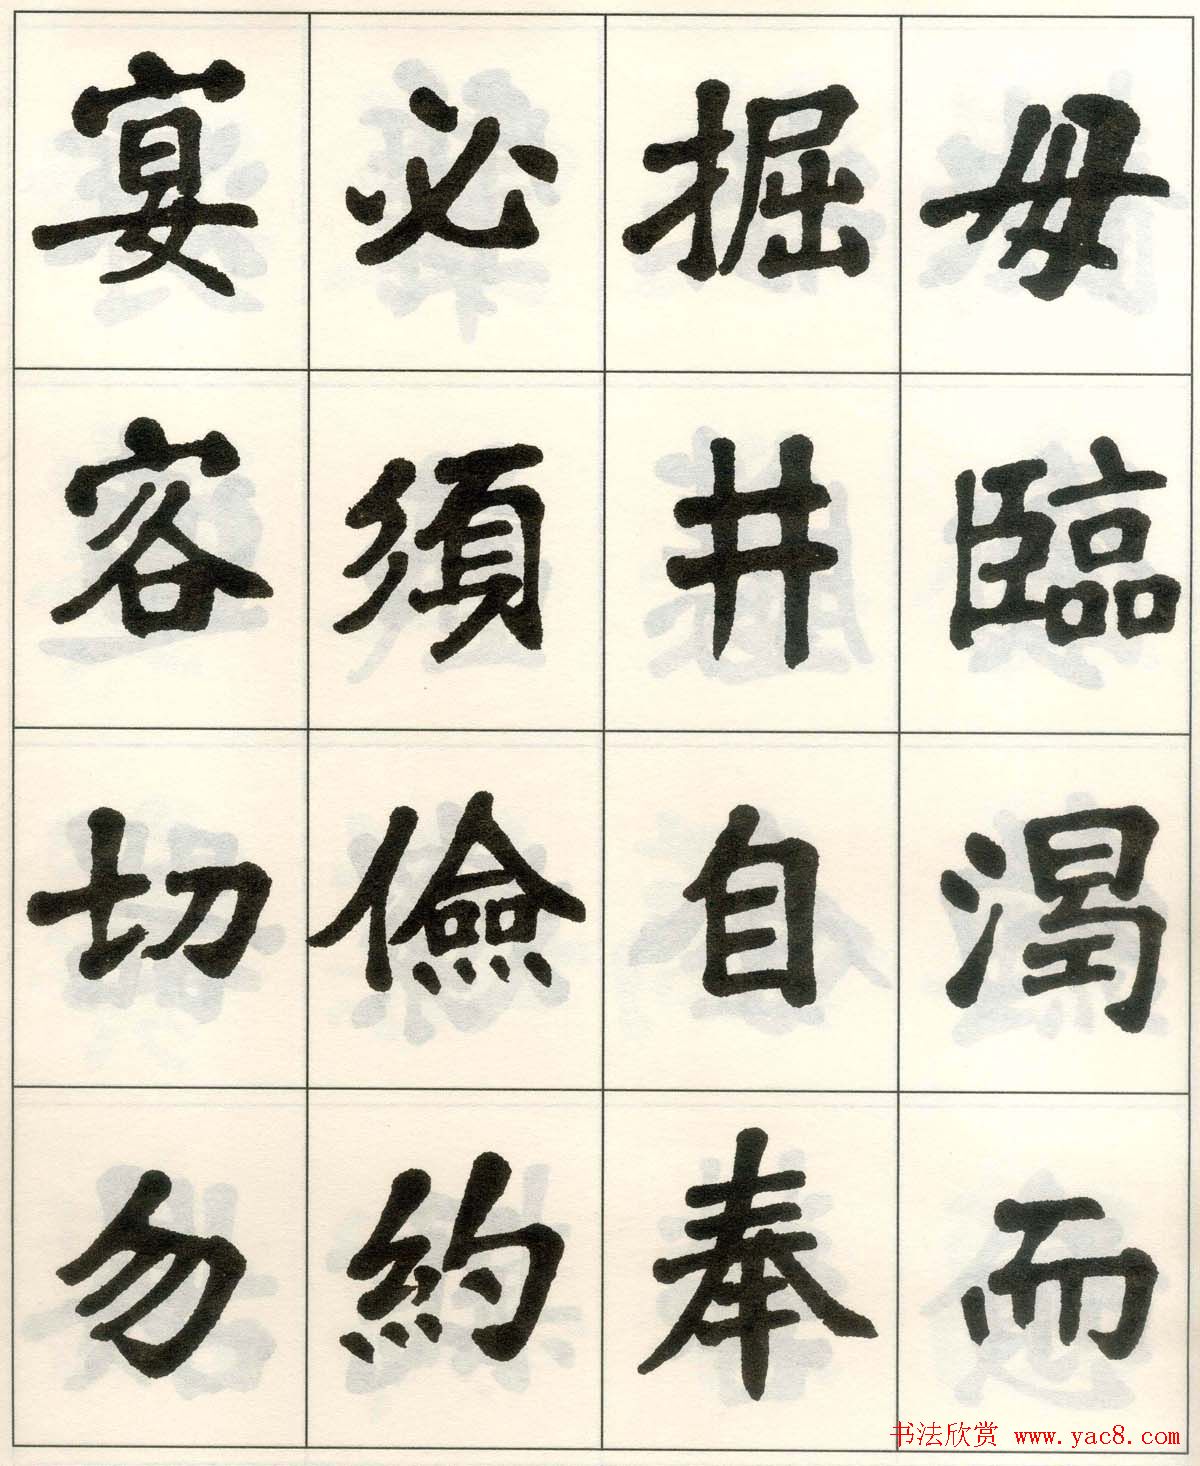 毋臨渴而
掘井自奉
必須儉約
宴客切勿
书法欣赏 www.yac8.com